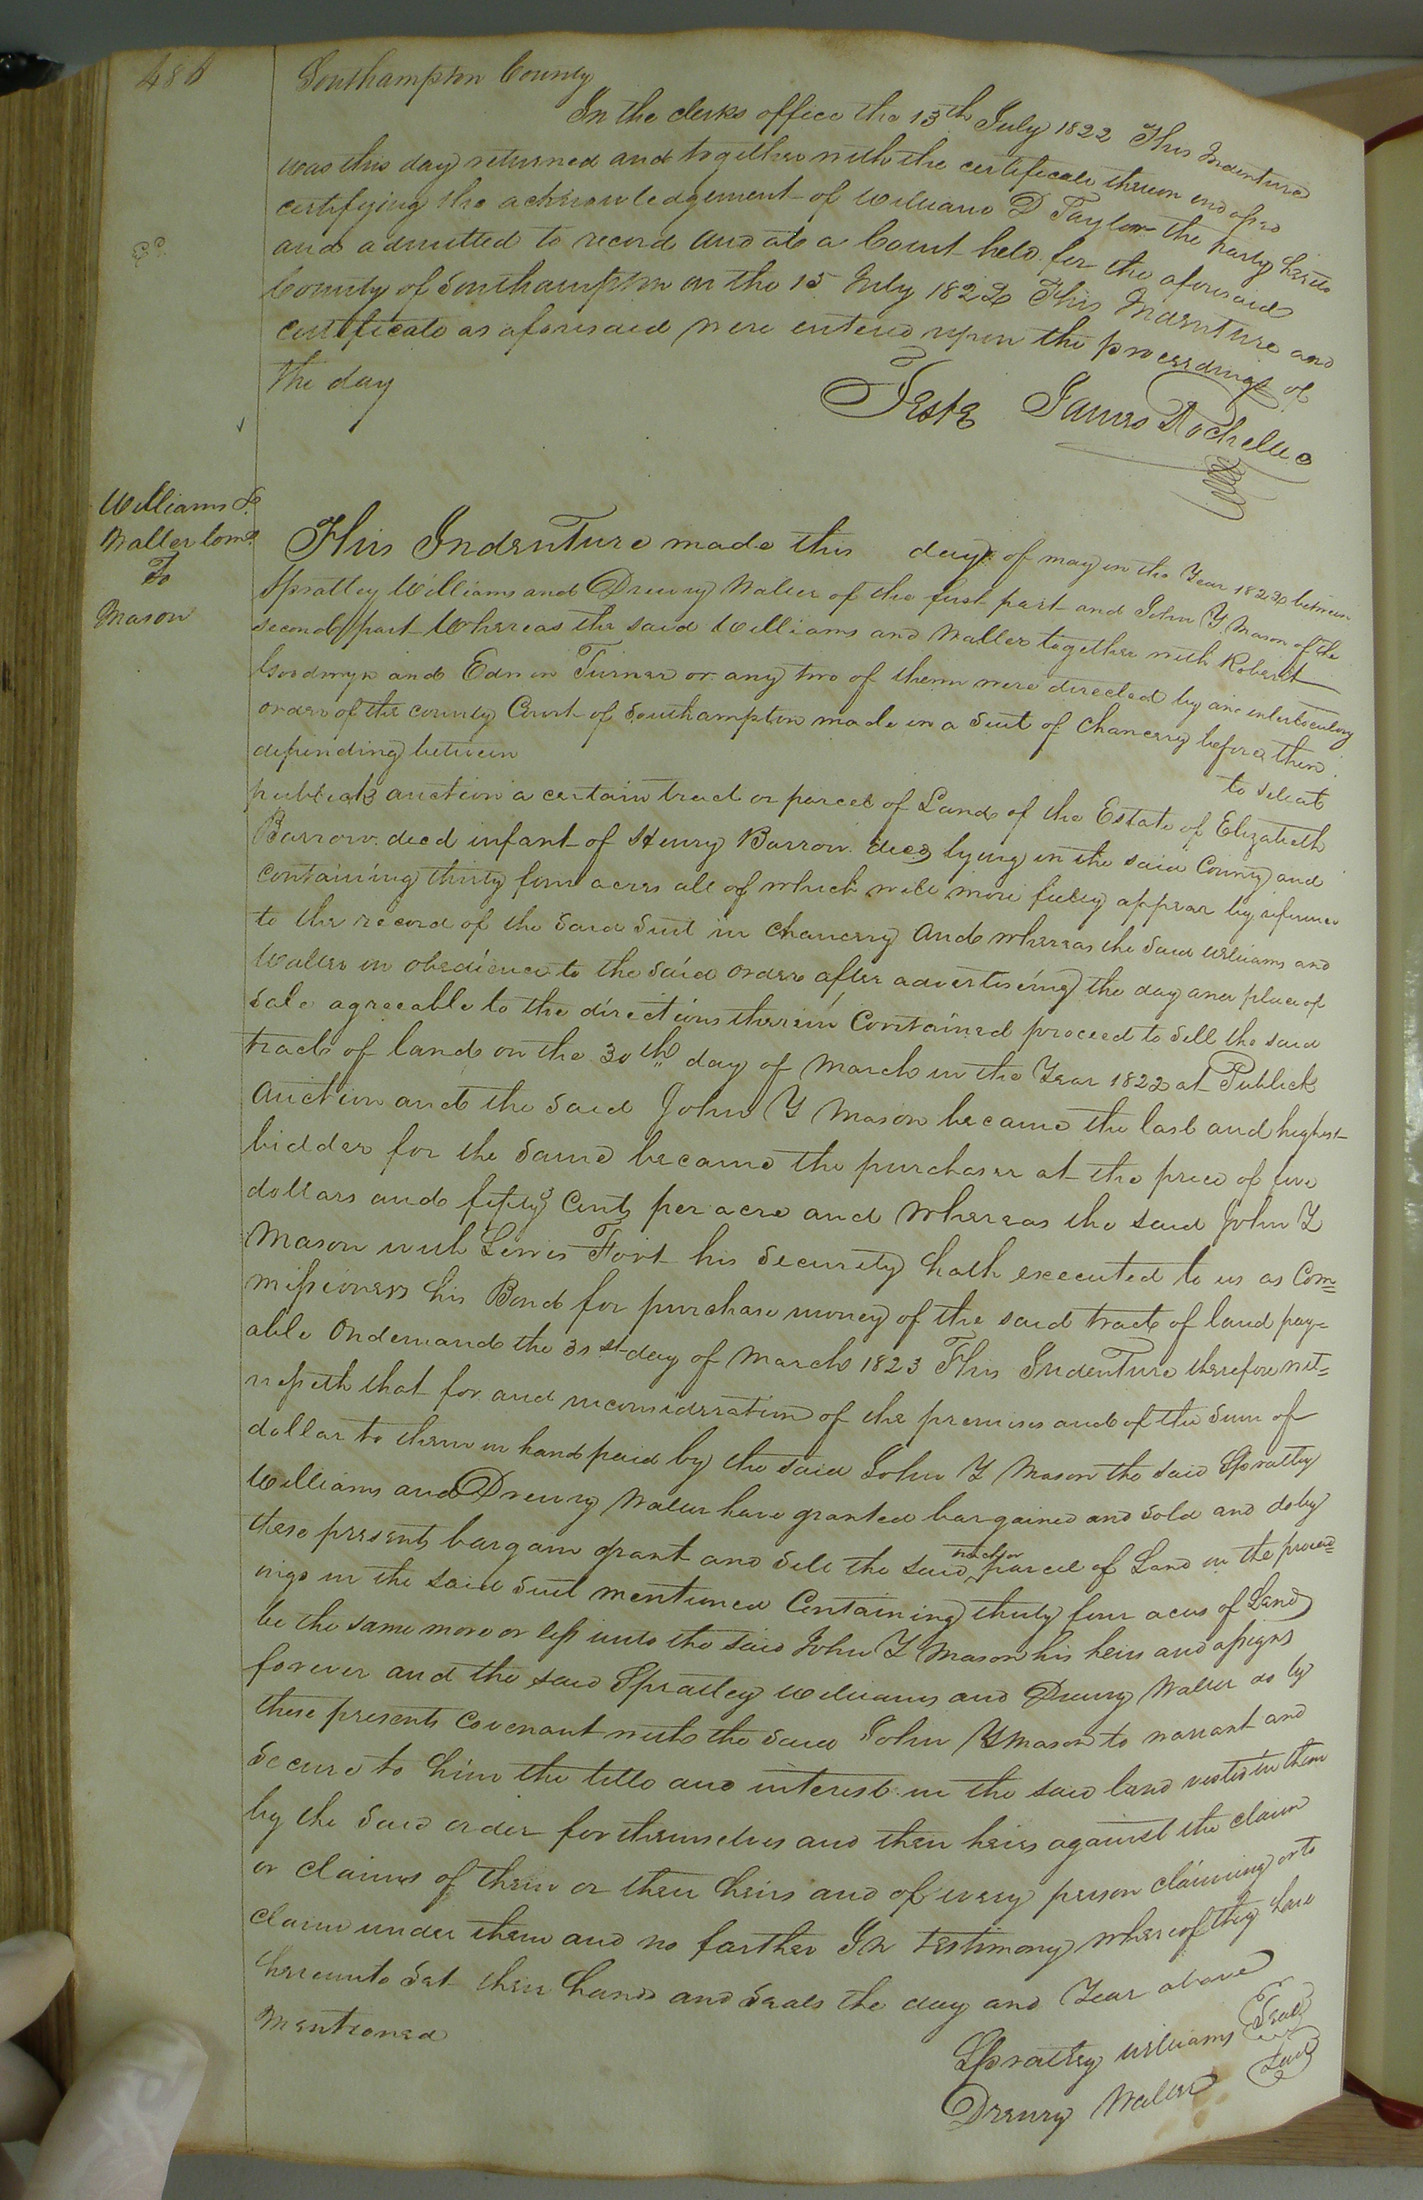 486
Southampton County
In the clerks office the 15th July 1822 This Indenture
was this day returned and together with the certificate thereon endorsed
certifying the acknowledgement of William D Taylor the party hereto
and admitted to record and at a Court held for the aforesaid
County of Southampton on the 15 July 1822 This Indenture and
certificate as aforesaid were entered upon the proceedings of
the day
Teste James Rochelle
Williams &
Waller Coms.
To
Mason
This Indenture made this day of may in the Year 1822 between
Spratley Williams and Drewry Waller of the first part and John Y. Mason of the
second part Whereas the said Williams and Waller together with Robert
Goodwyn and Edwin Turner or any two of them were directed by an interlocutory
order of the county Court of Southampton made in a Suit of Chancery before them
depending between to sell at
publick auction a certain tract or parcel of Land of the Estate of Elizabeth
Barrow decd infant of Henry Barrow decd lying in the said County and
containing thirty four acres all of which will more fully appear by reference
to the record of the said Suit in Chancery And whereas the said Williams and
Waller in obedience to the said order after advertising the day and place of
sale agreeable to the directions therein Contained proceed to sell the said
tract of land on the 30th day of March in the Year 1822 at Publick
Auction and the said John Y Mason became the last and highest
bidder for the same became the purchaser at the price of
dollars and fifty Cents per acre and Whereas the said John Y
Mason with Lewis Fort his Security hath executed to us as Com=
missioners his Bond for purchase money of the said tract of land pay=
able On demand the 31st day of March 1823 This Indenture therefore wit=
nesseth that for and in consideration of the premises and of the Sum of
dollar to them in hand paid by the said John Y Mason the said Spratley
Williams and Drewry Waller have granted bargained and sold and do by
these presents bargain grant and sell the said tract or parcel of Land in the proceed=
ings in the said Suit mentioned Containing thirty four acres of Land
be the same more or less unto the said John Y Mason his heirs and assigns
forever and the said Spratley Williams and Drewry Waller do by
these presents Covenant with the said John Y Mason to warrant and
secure to him the title and interest in the said land vested in them
by the said order for themselves and their heirs against the claim
or claims of them or their heirs and of every person claiming or to
claim under them and no farther In testimony whereof they have
hereunto set their hands and seals the day and Year above
mentioned
Spratley Williams Seal
Drewry Waller Seal